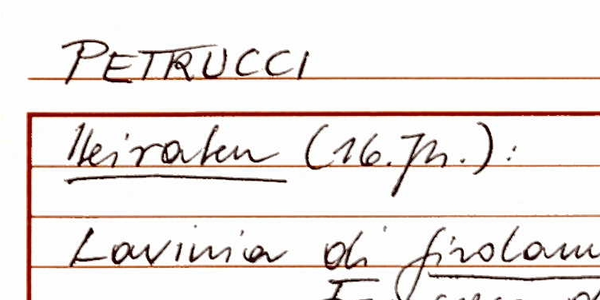 PETRUCCI
Heiraten (16. Jh.):
Lavinia di